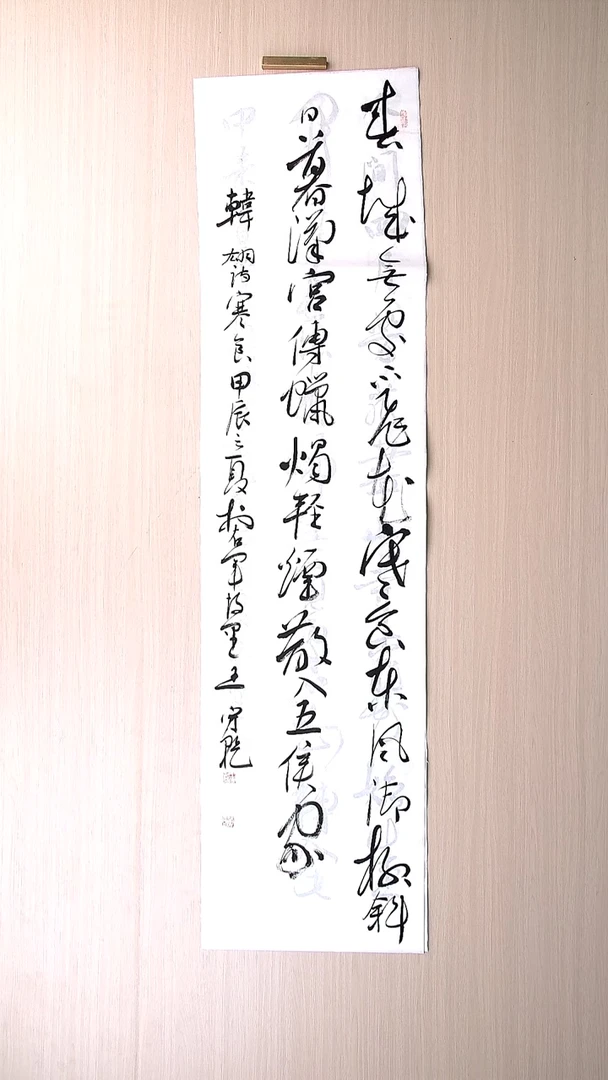 春城無處不飛花寒食東風御柳斜
日暮漢宮傳蠟燭輕煙散入五侯家
韓翃詩寒食甲辰之夏於右軍故里王守